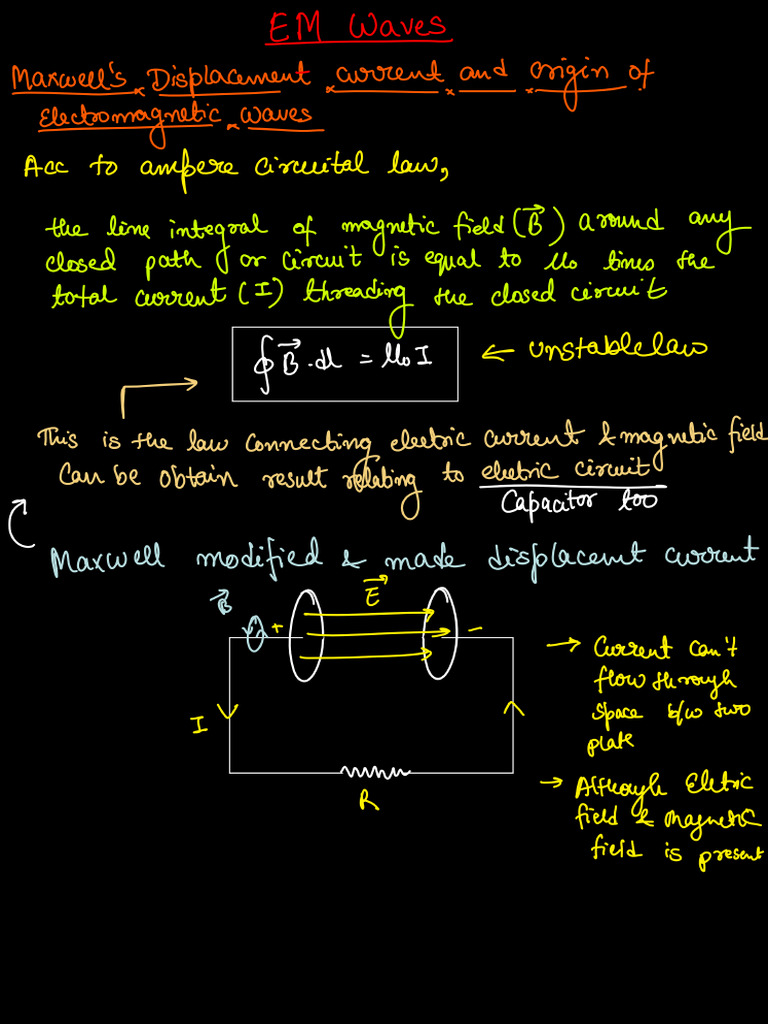 EM Waves
Maxwell's Displacement current and origin of
Electromagnetic waves
Acc to ampere circuital law,
the line integral of magnetic field (B⃗) around any
closed path or circuit is equal to μ₀ times the
total current (I) threading the closed circuit
∮ B⃗ . dl = μ₀ I ← unstable law
This is the law connecting electric current & magnetic field
Can be obtain result relating to electric circuit
Capacitor too
Maxwell modified & made displacemt current
E⃗
B⃗
+ −
I
R
→ Current can't
flow through
space b/w two
plate
→ Although Eletric
field & magnetic
field is present